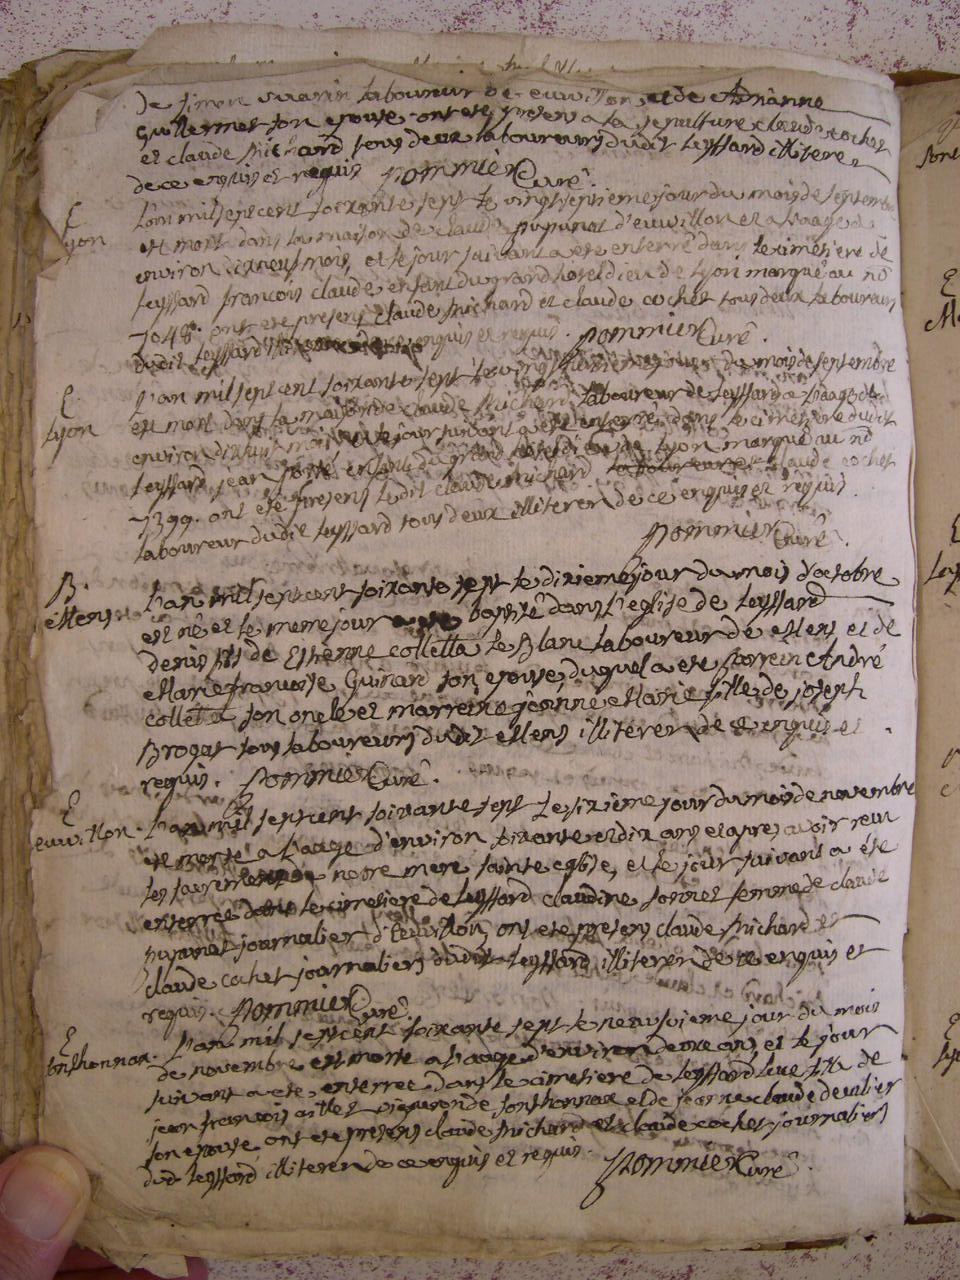 de simon suarin laboureur de euvillon, et de Adrianne
Guillermet son epouse ont eté presens a la sepulture claude cochet
et claude Michard tous deux laboureurs dudit Leyssard illiteres
de ce enquis et requis Pommier Curé.
E Lyon
L'an mil sept cent soixante sept le vingt septieme jour du mois de septembre
est mort dans la maison de claude pupunat d'euvillon et a l'aage d'
environ dixneuf mois, et le jour suivant a eté enterré dans le cimetiere de
Leyssard françois claude enfant du grand hotel dieu de Lyon marqué au no
7048. ont eté presens claude Michard et claude cochet tous deux laboureurs
dudit Leyssard enquis et requis. Pommier Curé.
E Lyon
L'an mil sept cent soixante sept le vingt jour du mois de septembre
est mort dans la maison de claude Michard laboureur de Leyssard a l'aage de
environ mois et le jour suivant a eté enterré dans le cimetiere dudit
Leyssard jean enfant du grand hotel dieu de Lyon marqué au no
7399. ont eté presens ledit claude Michard claude cochet
laboureur dudit Leyssard tous deux illiteren de ce enquis et requis.
Pommier Curé.
B. Mens
L'an mil sept cent soixante sept le dixieme jour du mois d'octobre
est né et le meme jour a eté baptisé dans l'eglise de Leyssard
denis fils de Estienne colletta le Blanc laboureur de Mens et de
Marie françoise Guinard son epouse, duquel a eté parrein André
colletta son oncle et marreine jeanne Marie fille de joseph
Brogat tous laboureurs dudit Mens illiteren de ce enquis et
requis. Pommier Curé.
E euvillon.
L'an mil sept cent soixante sept le sixieme jour du mois de novembre
est morte a l'aage d'environ soixante et dix ans et apres avoir recu
les sacremens de notre mere sainte eglise, et le jour suivant a eté
enterrée dans le cimetiere de Leyssard claudine sonnet femme de claude
pupunat journalier d'Euvillon, ont eté presens claude Michard et
claude cochet journaliers dudit Leyssard illiteren de ce enquis et
requis. Pommier Curé.
E Sonthonnax.
L'an mil sept cent soixante sept le neuvoieme jour du mois
de novembre est morte a l'aage d'environ douze ans et le jour
suivant a eté enterrée dans le cimetiere de Leyssard fille de
jean françois aillet vigneron de sonthonnax et de jeanne claude
son epouse, ont eté presens claude Michard et claude cochet journaliers
dud. Leyssard illiteren de ce enquis et requis. Pommier Curé.